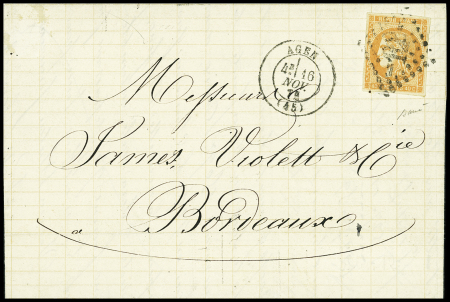 AGEN
4E 16
NOV.
72
(45)
Messieurs
James, Violett & Cie
à Bordeaux